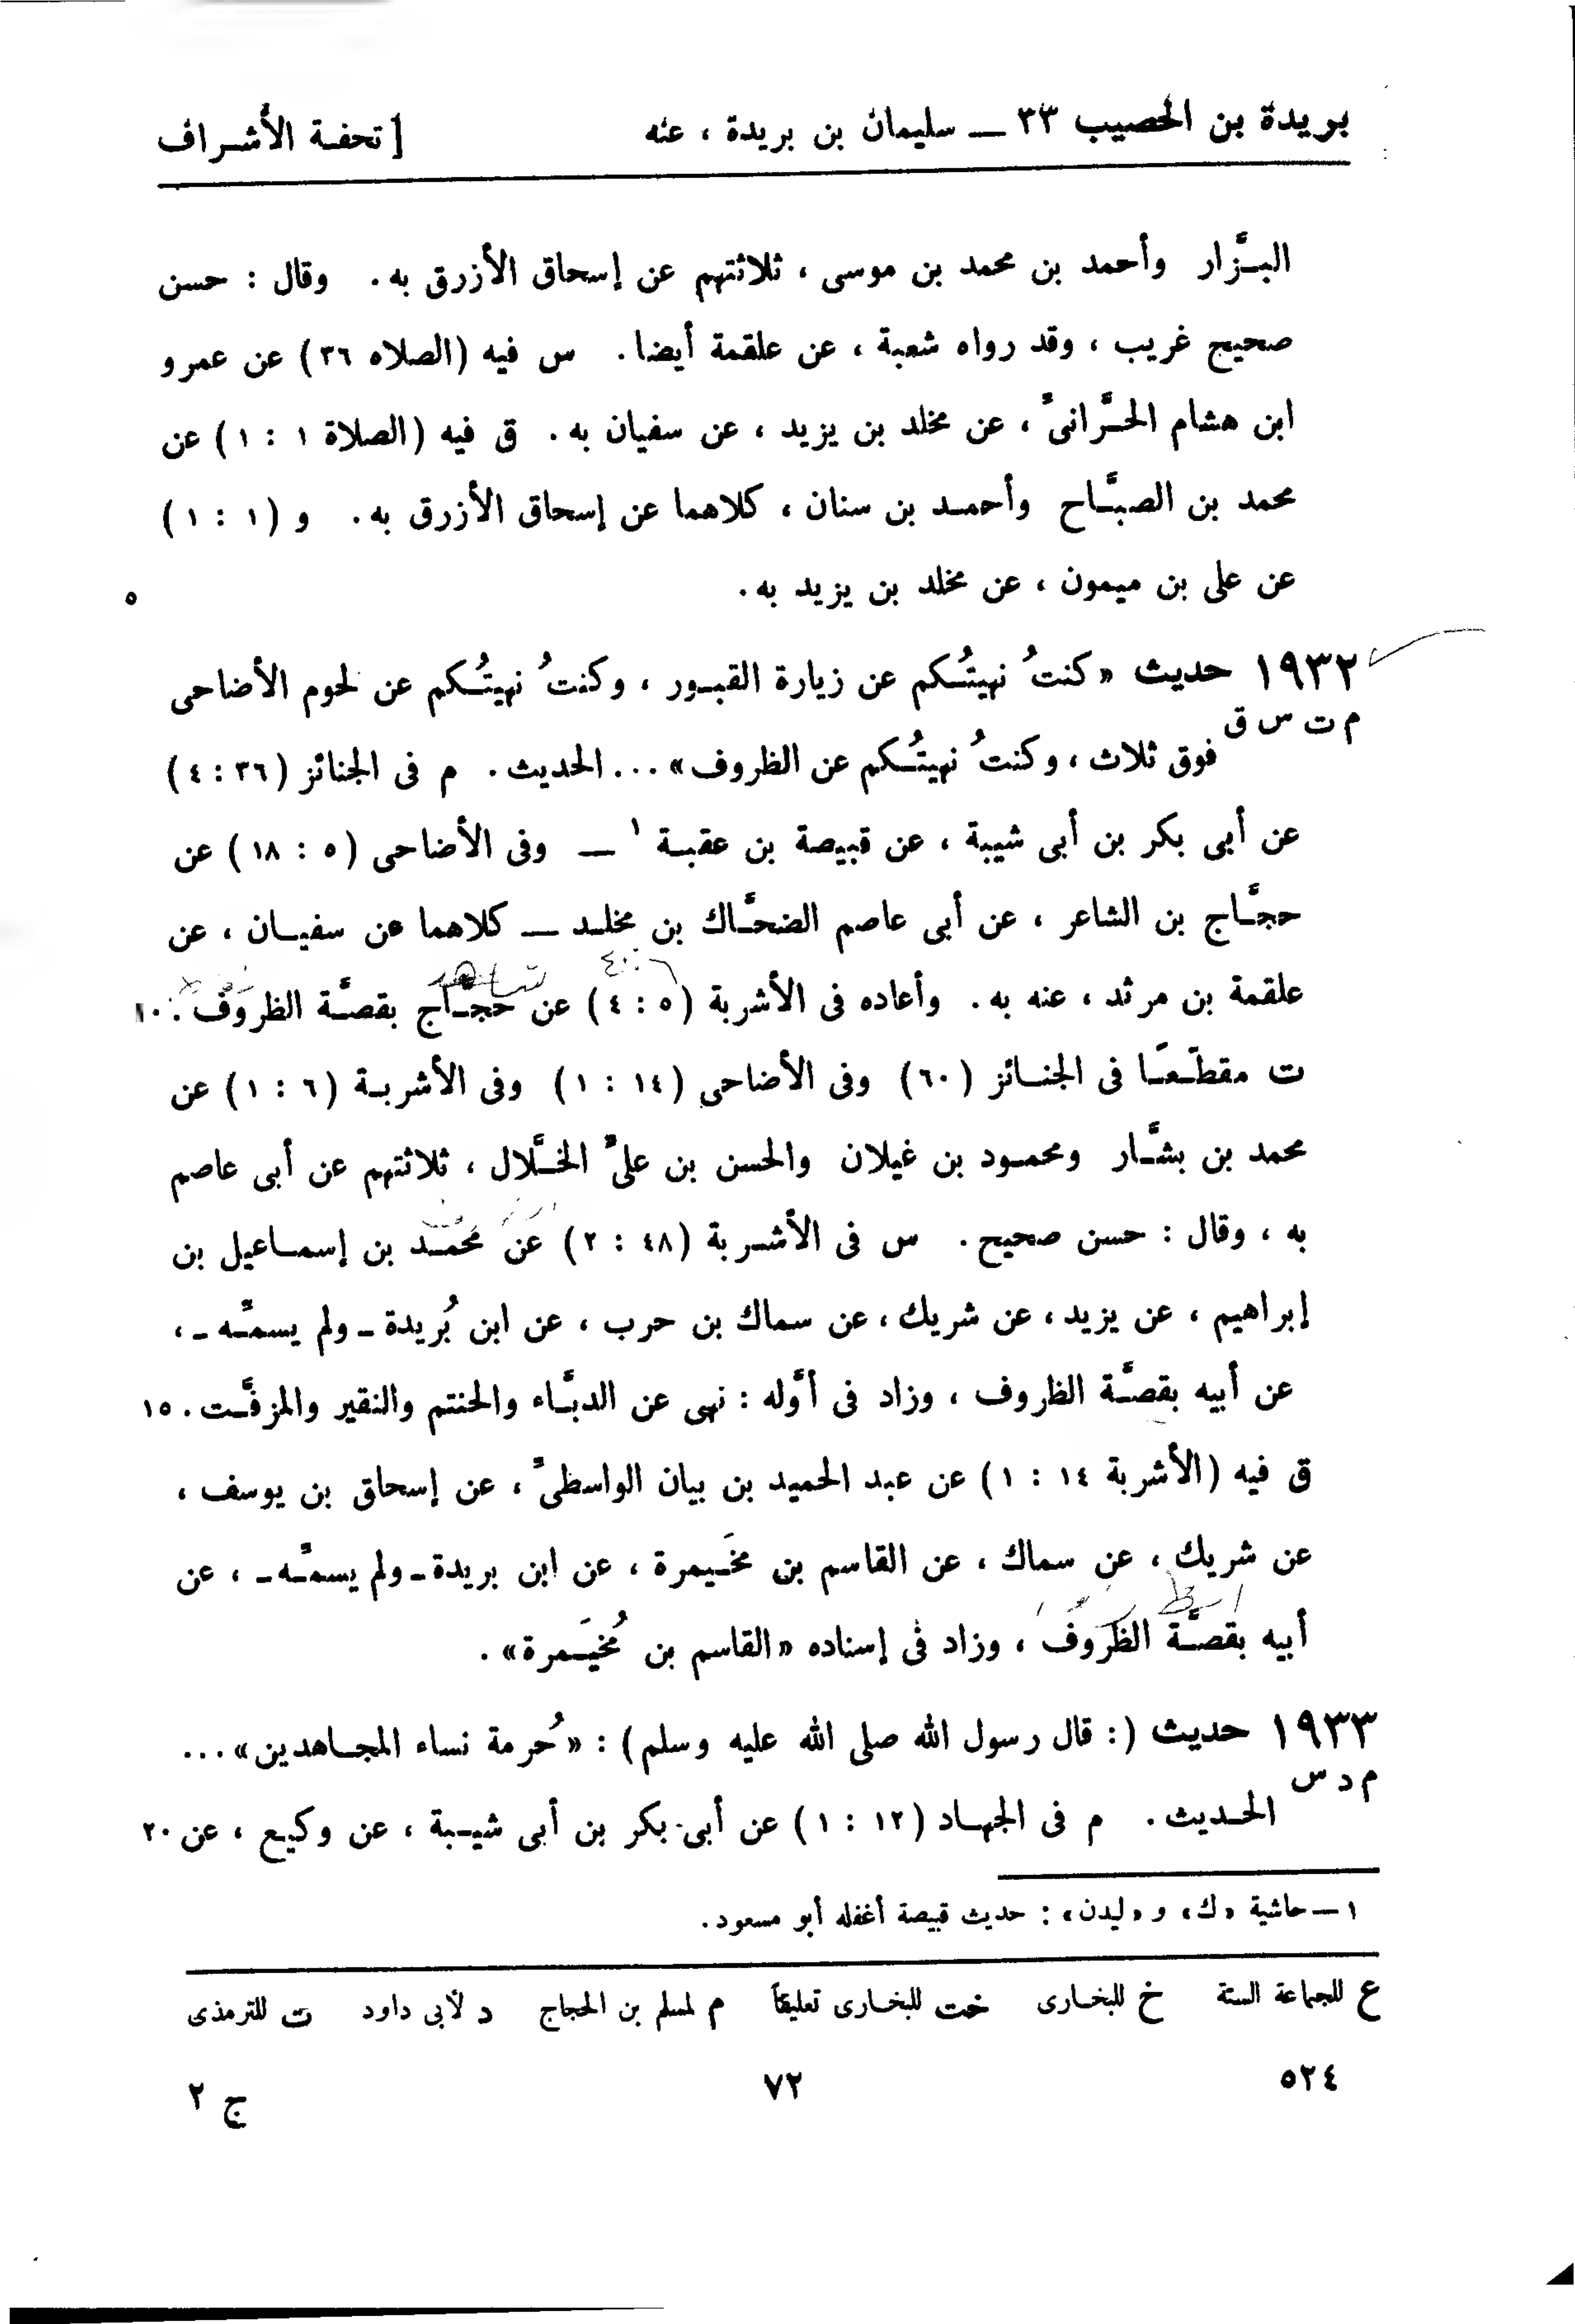 بريدة بن الحصيب ٣٣ — سليمان بن بريدة ، عنه [ تحفـة الأشـراف
البـزَّار وأحمد بن محمد بن موسى ، ثلاثتهم عن إسحاق الأزرق به . وقال : حسن
صحيح غريب ، وقد رواه شعبة ، عن علقمة أيضا . س فيه (الصلاه ٣٦) عن عمرو
ابن هشام الحـرَّانىّ ، عن مخلد بن يزيد ، عن سفيان به . ق فيه (الصلاة ١ : ١) عن
محمد بن الصبَّـاح وأحمـد بن سنان ، كلاهما عن إسحاق الأزرق به . و (١ : ١)
عن على بن ميمون ، عن مخلد بن يزيد به . ٥
١٩٣٢ حديث «كنتُ نهيتُـكم عن زيارة القبـور ، وكنتُ نهيتُـكم عن لحوم الأضاحى
م ت س ق
فوق ثلاث ، وكنتُ نهيتُـكم عن الظروف» ... الحديث . م فى الجنائز (٣٦ : ٤)
عن أبى بكر بن أبى شيبة ، عن قبيصة بن عقبـة ١ — وفى الأضاحى (٥ : ١٨) عن
حجَّـاج بن الشاعر ، عن أبى عاصم الضحَّـاك بن مخلـد — كلاهما عن سفيـان ، عن
علقمة بن مرثد ، عنه به . وأعاده فى الأشربة (٥ : ٤) عن حجـاج بقصَّـة الظروف . ١٠
ت مقطّـعـًـا فى الجنـائز (٦٠) وفى الأضاحى (١٤ : ١) وفى الأشربـة (٦ : ١) عن
محمد بن بشَّـار ومحمـود بن غيلان والحسن بن علىّ الخـلَّال ، ثلاثتهم عن أبى عاصم
به ، وقال : حسن صحيح . س فى الأشـربة (٤٨ : ٢) عن محمـد بن إسمـاعيل بن
إبراهيم ، عن يزيد ، عن شريك ، عن سماك بن حرب ، عن ابن بُريدة ـ ولم يسمـِّـه ـ ،
عن أبيه بقصَّـة الظروف ، وزاد فى أوَّله : نهى عن الدبَّـاء والحنتم والنقير والمزفَّـت . ١٥
ق فيه (الأشربة ١٤ : ١) عن عبد الحميد بن بيان الواسطىّ ، عن إسحاق بن يوسف ،
عن شريك ، عن سماك ، عن القاسم بن مخَـيمرة ، عن ابن بريدة ـ ولم يسمـِّـه ـ ، عن
أبيه بقصَّـة الظروف ، وزاد فى إسناده «القاسم بن مُخيَـمرة» .
١٩٣٣ حديث (: قال رسول الله صلى الله عليه وسلم) : «حُرمة نساء المجـاهدين» ...
م د س
الحـديث . م فى الجهـاد (١٢ : ١) عن أبى بكر بن أبى شيـبة ، عن وكيـع ، عن ٢٠
١ — حاشية «ك» و «ليدن» : حديث قبيصة أغفله أبو مسعود .
ع للجماعة الستة خ للبخـارى خت للبخـارى تعليقاً م لمسلم بن الحجاج د لأبى داود ت للترمذى
٥٢٤ ٧٢ ج ٢